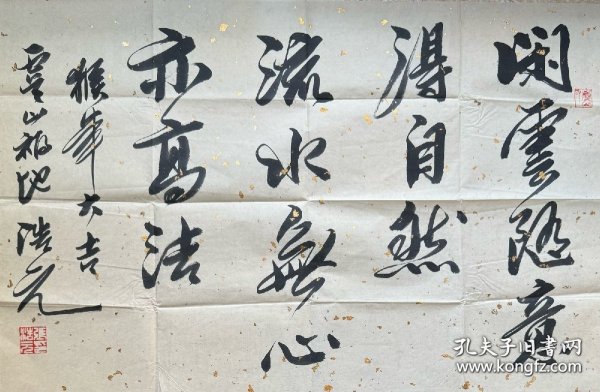 閑雲隨意
得自然
流水無心
亦高洁
猴年大吉
虞山福地 浩元
孔夫子旧书网
www.kongfz.com